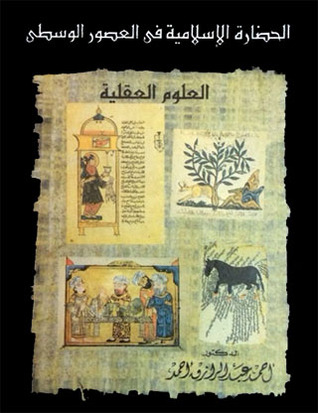 الحضارة الإسلامية فى العصور الوسطى
العلوم العقلية
الدكتور
احمد عبد الرازق احمد